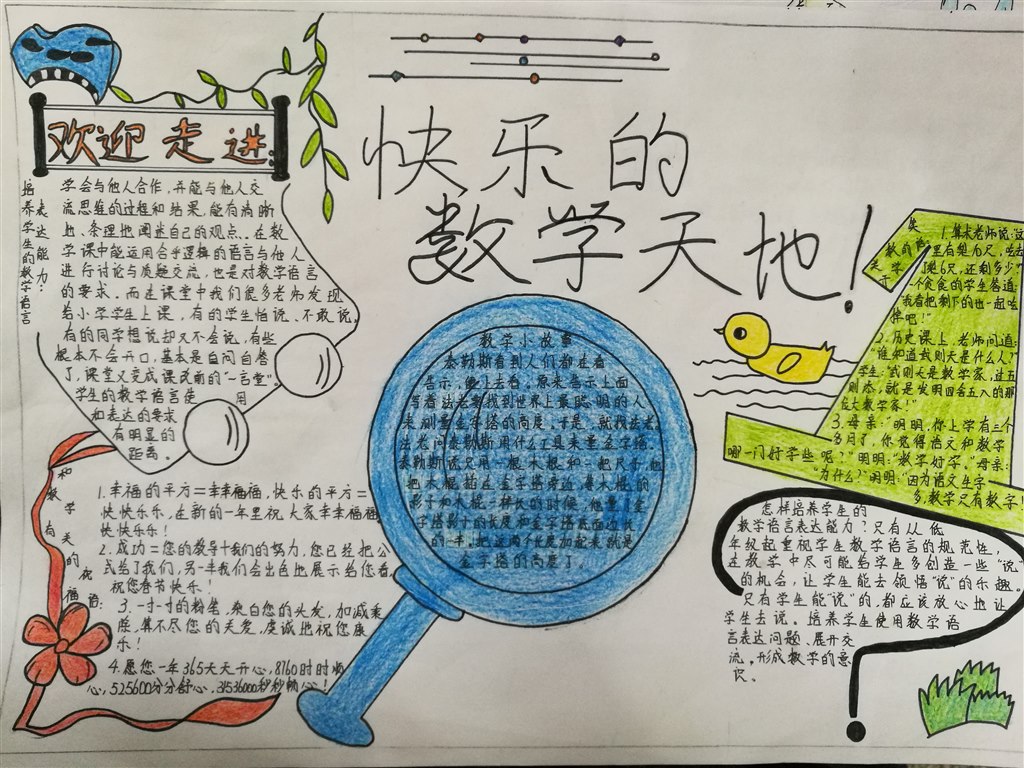 欢迎走进
快乐的
数学天地！
培养学生的数学语言
表达能力：
学会与他人合作，并能与他人交
流思维的过程和结果，能有清晰
地、条理地阐述自己的观点。在数
学课中能运用合乎逻辑的语言与他人
进行讨论与质疑交流，也是对数学语言
的要求。而在课堂中我们很多老师发现
给小学学生上课，有的学生怕说、不敢说，
有的同学想说却又不会说，有些
根本不会开口，基本是自问自答
了，课堂又变成课改前的“一言堂”。
学生的数学语言使 用
和表达的要求
有明显的
距离。
和数学有关的祝福语：
1.幸福的平方=幸幸福福，快乐的平方=
快快乐乐，在新的一年里祝大家幸幸福福
快快乐乐！
2.成功=您的教导+我们的努力，您已经把公
式给了我们，另一半我们会出色地展示给您看，
祝您春节快乐！
3.一寸一寸的粉笔，染白您的头发，加减乘
除，算不尽您的关爱，虔诚地祝您康
乐！
4.愿您一年365天天开心，8760时时顺
心，525600分分舒心，31536000秒秒畅心！
数学小故事
泰勒斯看到人们都在看
告示，便上去看。原来告示上面
写着法老要找到世界上最聪明的人
来测量金字塔的高度。于是，就找法老。
法老问泰勒斯用什么工具来量金字塔。
泰勒斯说只用一根木棍和一把尺子，他
把木棍插在金字塔旁边，等木棍的
影子和木棍一样长的时候，他量了金
字塔影子的长度和金字塔底面边长
的一半。把这两个长度加起来就是
金字塔的高度了。
1.算术老师说：这
里有梨10只，吃去
了梨6只，还剩多少？
一个贪食的学生答道：
“我看把剩下的也一起吃
掉吧！”
2.历史课上，老师问道：
“谁知道武则天是什么人？”
学生：“武则天是数学家，
就是发明四舍五入的那
位大数学家！”
3.母亲：“明明，你上学有三个
多月了，你觉得语文和数学
哪一门好学些呢？”明明：“数学好学。”母亲：
“为什么？”明明：“因为语文生字
多，数学只有数字！
怎样培养学生的
数学语言表达能力？只有从低
年级起重视学生数学语言的规范性，
在教学中尽可能给学生多创造一些“说”
的机会，让学生能去领悟“说”的乐趣。
只有学生能“说”的，都应该放心地让
学生去说。培养学生使用数学语
言表达问题、展开交
流，形成数学的意
识。